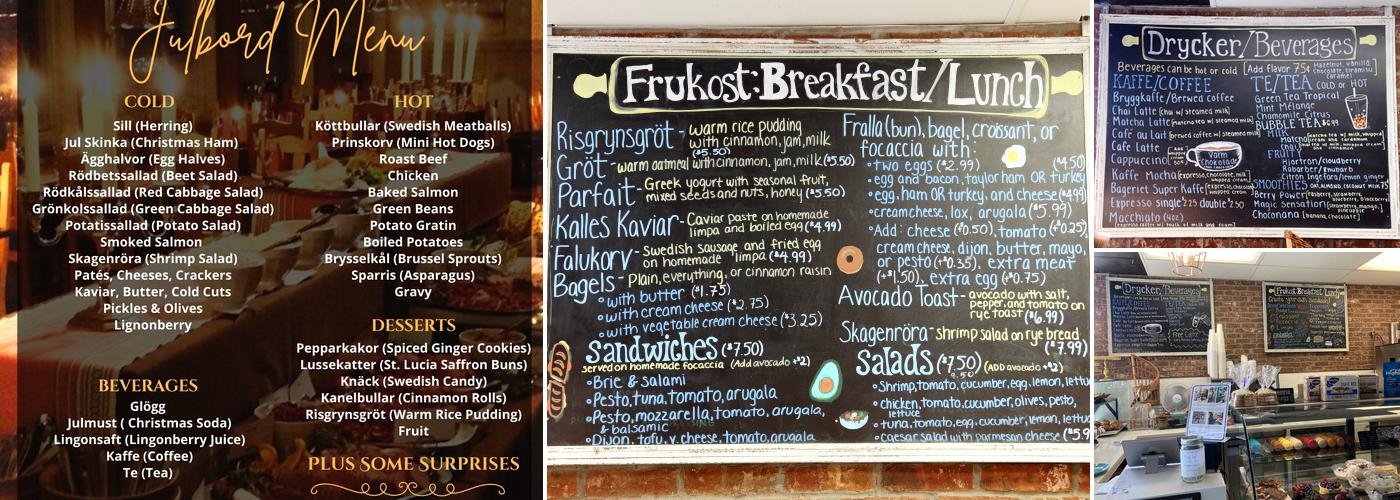 Julbord Menu
COLD
Sill (Herring)
Jul Skinka (Christmas Ham)
Ägghalvor (Egg Halves)
Rödbetssallad (Beet Salad)
Rödkålssallad (Red Cabbage Salad)
Grönkolssallad (Green Cabbage Salad)
Potatissallad (Potato Salad)
Smoked Salmon
Skagenröra (Shrimp Salad)
Patés, Cheeses, Crackers
Kaviar, Butter, Cold Cuts
Pickles & Olives
Lignonberry
BEVERAGES
Glögg
Julmust ( Christmas Soda)
Lingonsaft (Lingonberry Juice)
Kaffe (Coffee)
Te (Tea)
HOT
Köttbullar (Swedish Meatballs)
Prinskorv (Mini Hot Dogs)
Roast Beef
Chicken
Baked Salmon
Green Beans
Potato Gratin
Boiled Potatoes
Brysselkål (Brussel Sprouts)
Sparris (Asparagus)
Gravy
DESSERTS
Pepparkakor (Spiced Ginger Cookies)
Lussekatter (St. Lucia Saffron Buns)
Knäck (Swedish Candy)
Kanelbullar (Cinnamon Rolls)
Risgrynsgröt (Warm Rice Pudding)
Fruit
PLUS SOME SURPRISES
Frukost:Breakfast/Lunch
Risgrynsgröt - warm rice pudding
with cinnamon, jam, milk
($5.50)
Gröt - warm oatmeal with cinnamon, jam, milk ($5.50)
Parfait - Greek yogurt with seasonal fruit,
mixed seeds and nuts, honey ($5.50)
Kalles Kaviar - Caviar paste on homemade
limpa and boiled egg ($4.99)
Falukorv - Swedish sausage and fried egg
on homemade limpa ($4.99)
Bagels - Plain, everything, or cinnamon raisin
with butter ($1.75)
with cream cheese ($2.75)
with vegetable cream cheese ($3.25)
Sandwiches ($7.50)
served on homemade focaccia (Add avocado +$2)
Brie & salami
Pesto, tuna, tomato, arugula
Pesto, mozzarella, tomato, arugula,
& balsamic
Dijon, tofu, v. cheese, tomato, arugula
Fralla (bun), bagel, croissant, or
focaccia with:
two eggs ($2.99)
($4.50)
egg and bacon, taylor ham OR turkey
egg, ham OR turkey, and cheese ($4.99)
cream cheese, lox, arugula ($5.99)
Add: cheese ($0.50), tomato ($0.25),
cream cheese, dijon, butter, mayo,
or pesto (+$0.35), extra meat
(+$1.50), extra egg (+$0.75)
Avocado Toast - avocado with salt,
pepper, and tomato on
rye toast ($6.99)
Skagenröra - shrimp salad on rye bread
($7.99)
Salads ($7.50) (ADD avocado +$2)
9.50
Shrimp, tomato, cucumber, egg, lemon, lettuce
chicken, tomato, cucumber, olives, pesto,
lettuce
tuna, tomato, cucumber, lemon, lettuce
caesar salad with parmesan cheese ($5.9
Drycker/Beverages
Beverages can be hot or cold [Add flavor 75¢ Hazelnut, vanilla
chocolate, tiramisu
caramel
KAFFE/COFFEE
Bryggkaffe/Brewed coffee
Chai Latte [chai w/ steamed milk]
Matcha Latte [matcha tea w/ steamed milk]
Café au Lait [brewed coffee w/ steamed milk]
Café Latte
Cappuccino
Kaffe Mocha [espresso, chocolate, milk,
whipped cream]
Bageriet Super Kaffe [espresso, chocolate,
whipped cream]
Espresso single $2.25 double $2.50
Macchiato (4oz)
[espresso w/ touch of milk and foam]
Varm
Chokolade
TE/TEA COLD or HOT
Green Tea Tropical
Mint Mélange
Chamomile Citrus
BUBBLE TEA $6.99
MILK
FRUITY
Hjortron/cloudberry
Rabarber/Rhubarb
Citron Ingefära/lemon ginger
SMOOTHIES OAT, ALMOND, COCONUT MILK .75
Berry Power [raspberry, strawberry,
blueberry, blackberry]
Mango Sensation [strawberry, mango,
pineapple]
Choconana [banana, chocolate]
Drycker/Beverages
Frukost:Breakfast/Lunch